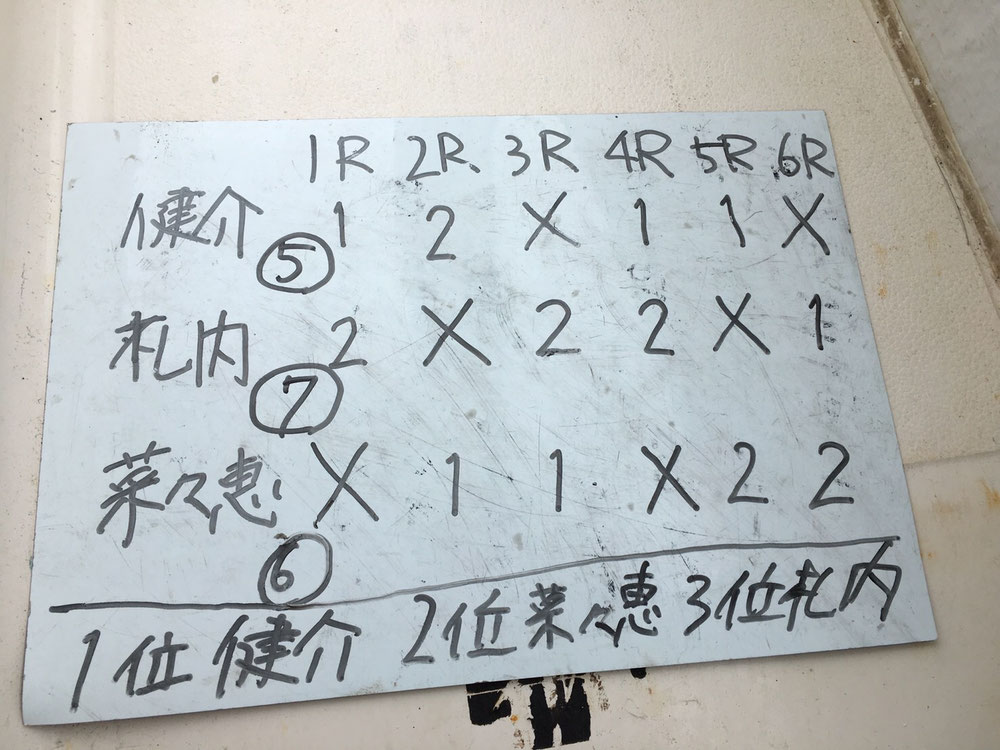 1R 2R 3R 4R 5R 6R
健介 ⑤ 1 2 X 1 1 X
札内 ⑦ 2 X 2 2 X 1
菜々恵 ⑥ X 1 1 X 2 2
1位 健介 2位 菜々恵 3位 札内